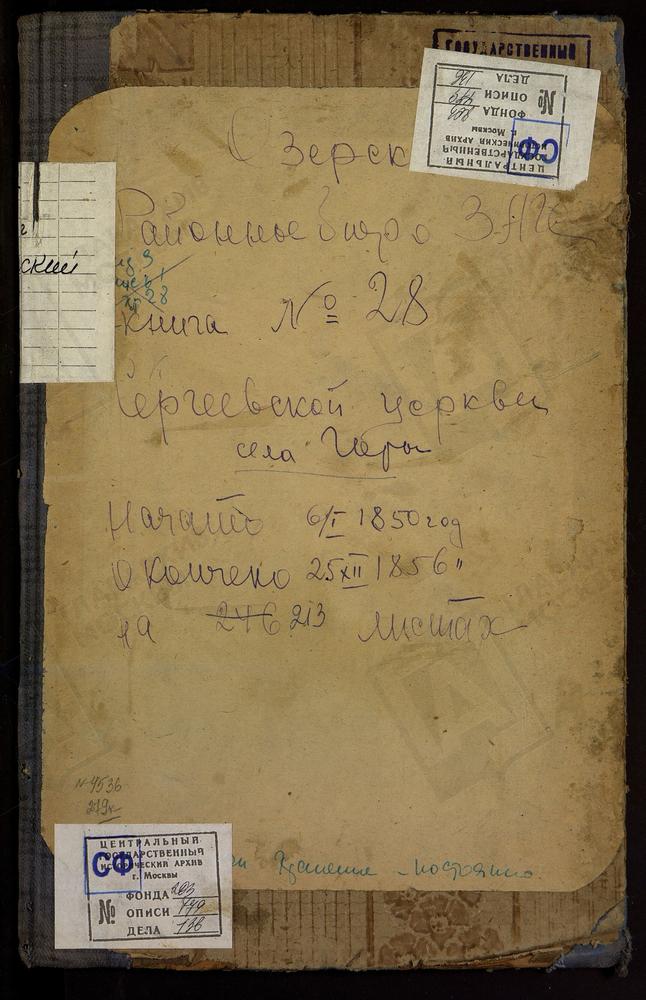 ГОСУДАРСТВЕННЫЙ
ЦЕНТРАЛЬНЫЙ
ГОСУДАРСТВЕННЫЙ
ИСТОРИЧЕСКИЙ АРХИВ
г. Москвы
ФОНДА
ОПИСИ
ДЕЛА
№
СФ
Зерск
Районное бюро ЗАГС
ский
Книга № 28
Сергеевской церкви
села Горы
Начато 6/I 1850 год
Окончено 25 XII 1856 "
на 246 213 листах
N 4536
ЦЕНТРАЛЬНЫЙ
ГОСУДАРСТВЕННЫЙ
ИСТОРИЧЕСКИЙ АРХИВ
г. Москвы
СФ
ФОНДА 203
№ ОПИСИ
ДЕЛА 136
хранения постоянно